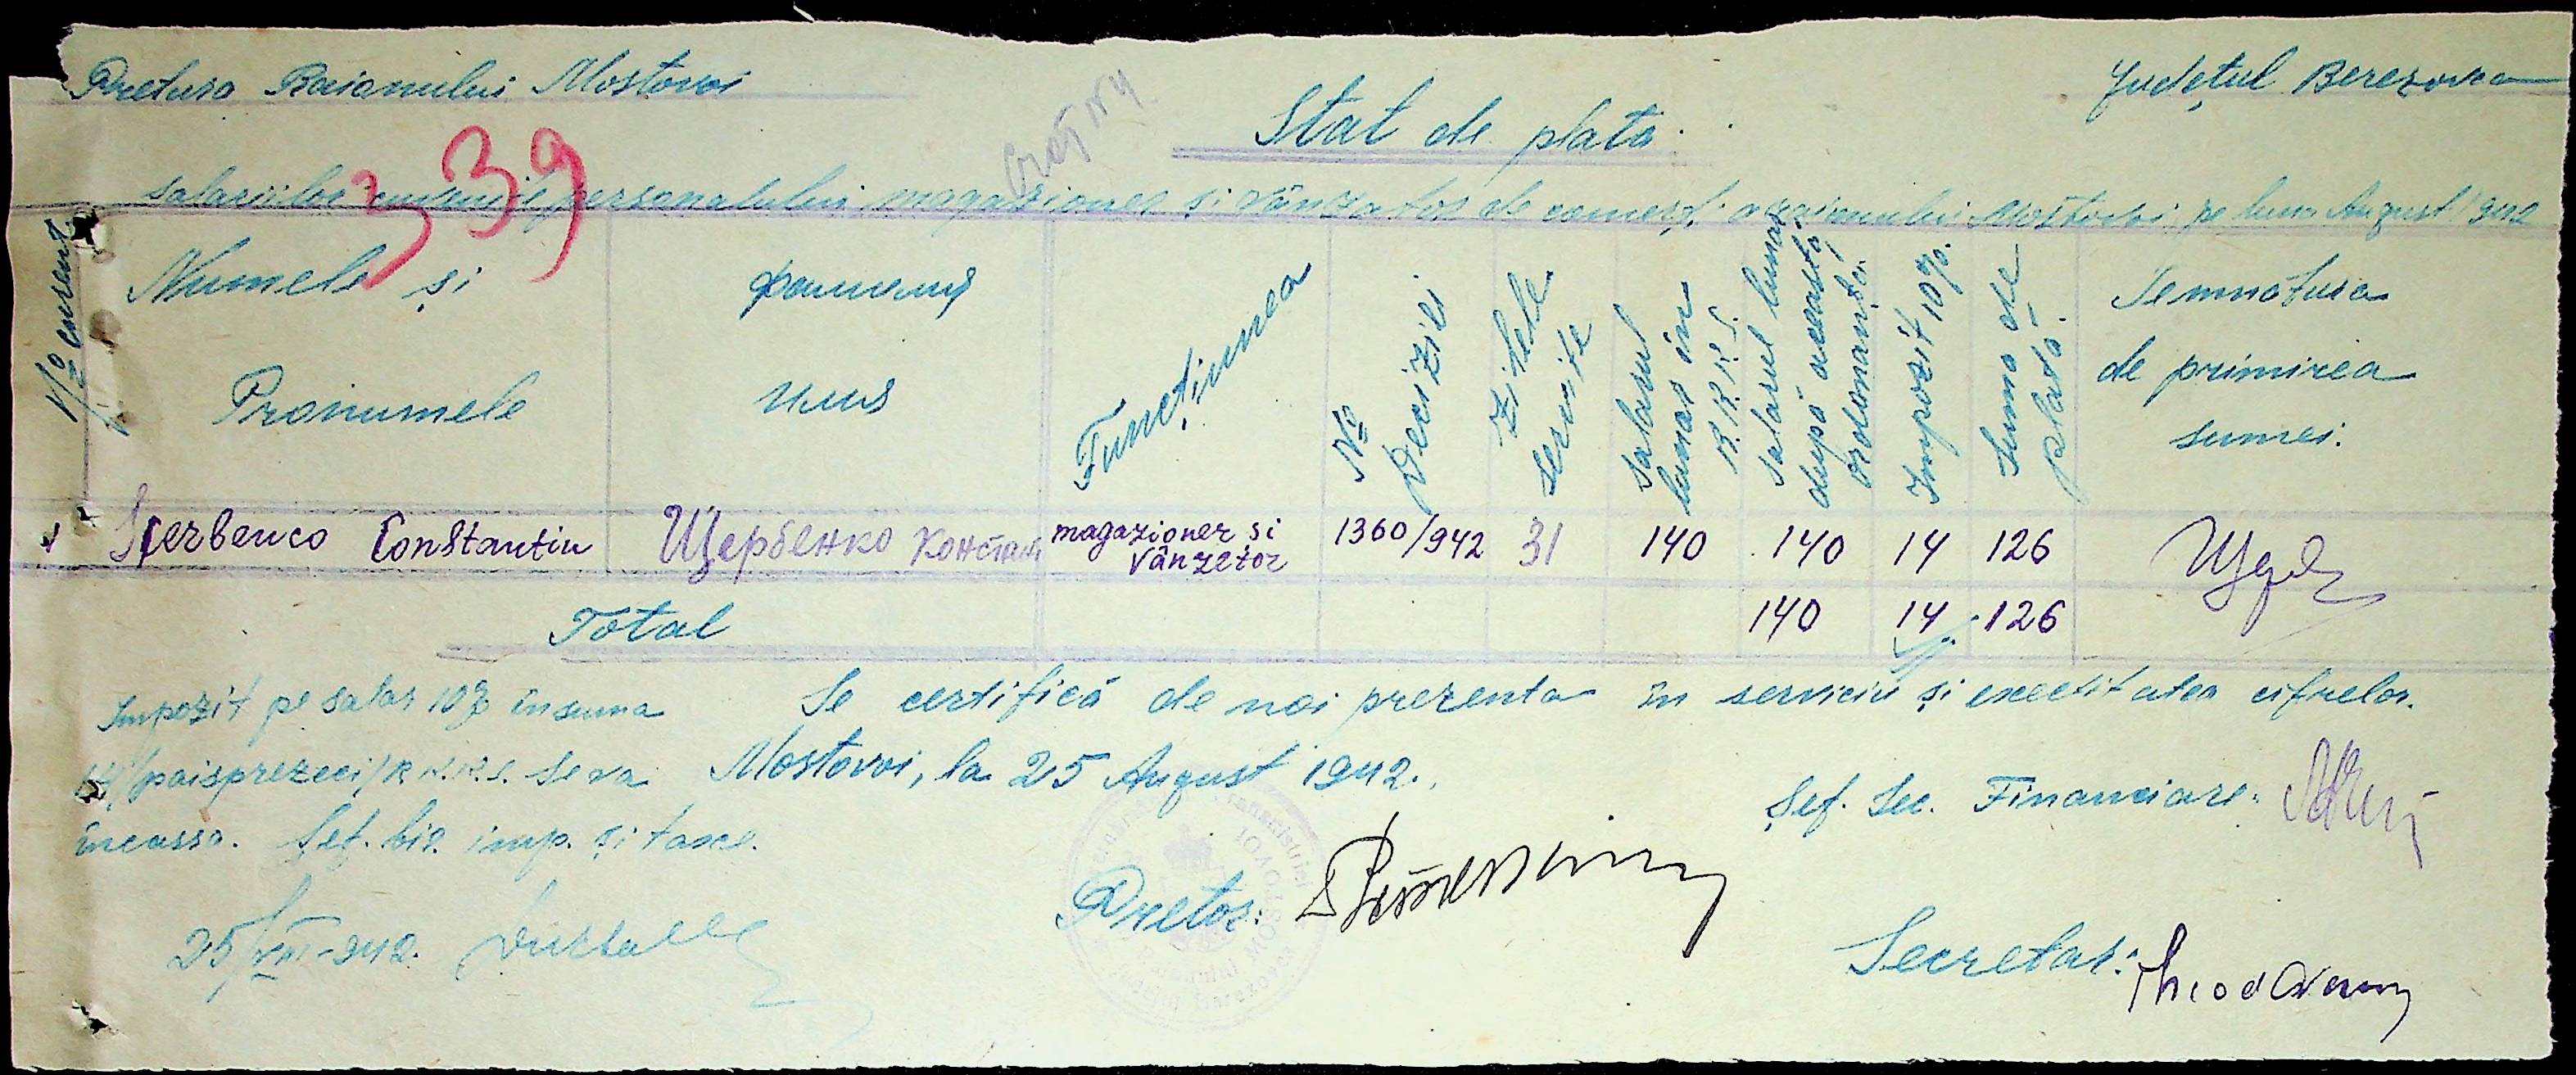 Pretura Raionului Mostovoi
Județul Berezovca
Stat de plata
339
salariilor personalului magazioner și vânzator de comerț a raionului Mostovoi pe luna August 1942
No curent
Numele și Pronumele
фамилия имя
Funcțiunea
No Deciziei
Zilele servite
Salarul lunar în R.K.K.S.
Salarul lunar după această ordonanța
Impozit 10%
Suma de plată
Semnatura de primirea sumei.
1 Șcerbenco Constantin Щербенко Констан magazioner și vânzetor 1360/942 31 140 140 14 126
Total 140 14 126
Impozit pe salar 10% în suma
14/paisprezeci/R.K.K.S. se va
incassa. Șef. bir. imp. și taxe.
25/VIII-942.
Se certifică de noi prezenta în serviciu și exectitatea cifrelor.
Mostovoi, la 25 August 1942.
Șef. Sec. Financiare:
Pretor:
Secretar: